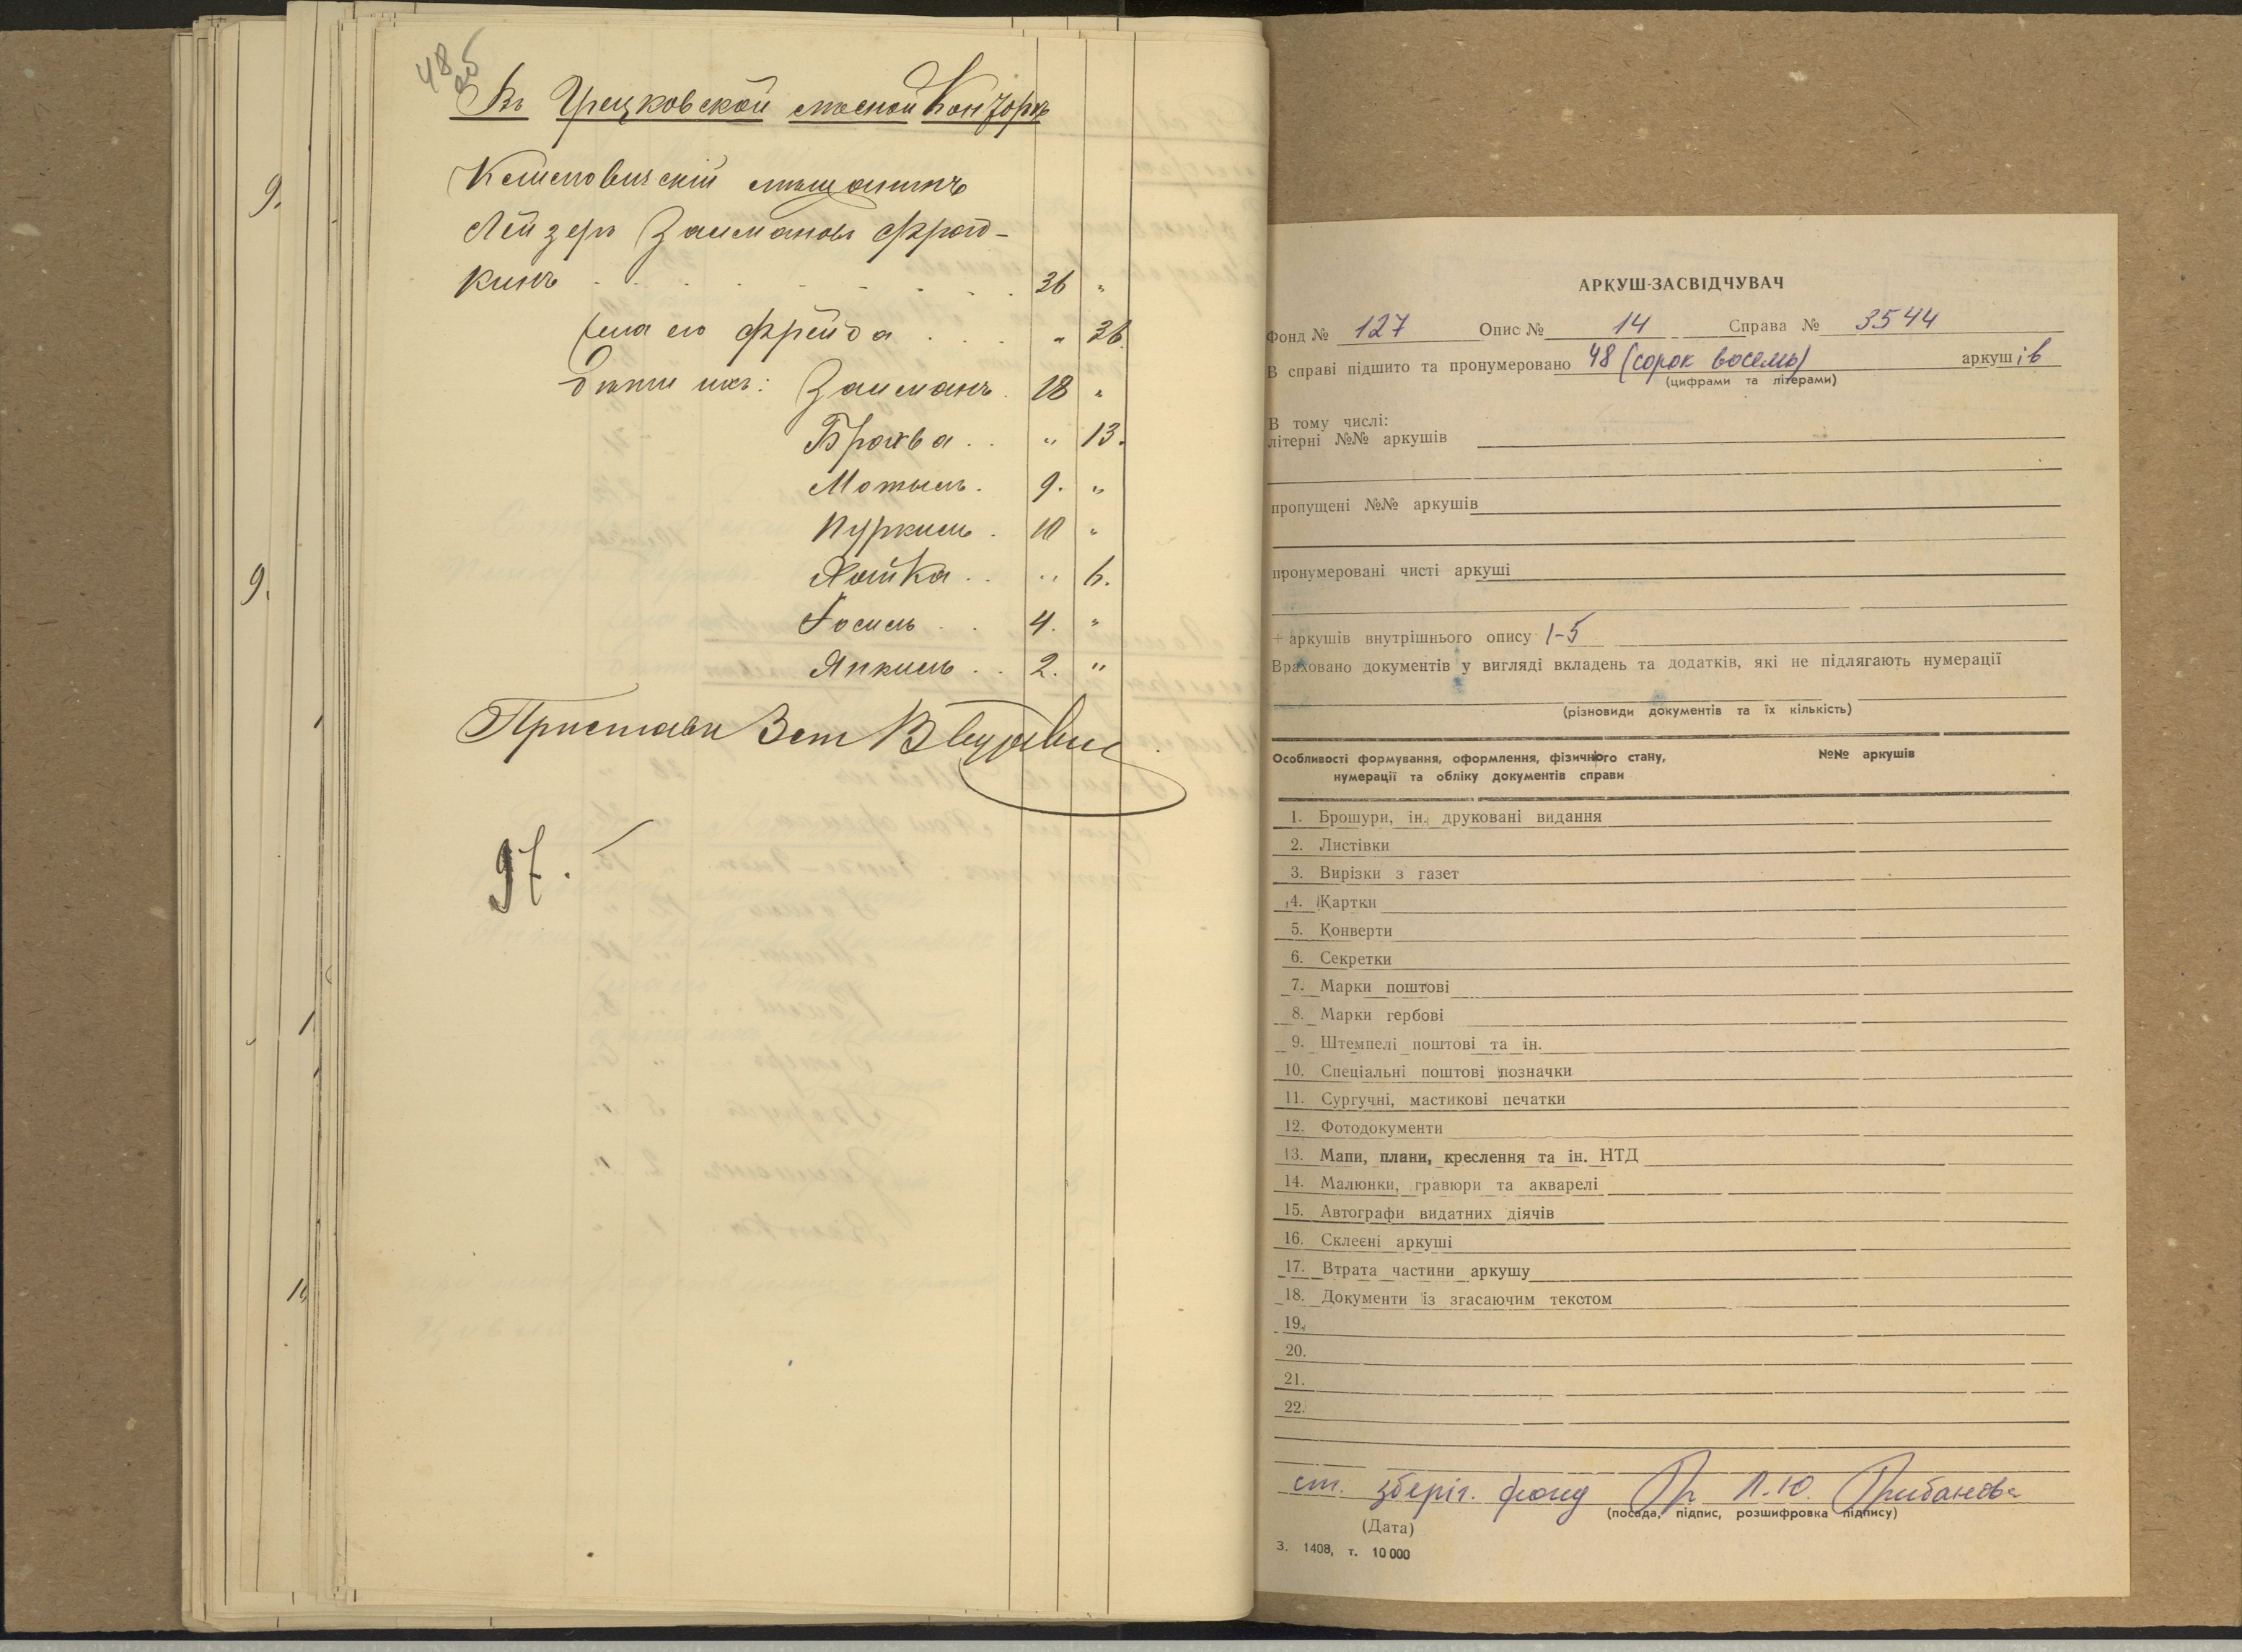 48
об
Въ Грецковской лѣсной Конторѣ
мѣщанинъ
Лейзеръ Залмановъ Фрад-
кинъ . . . . . . . . . 36 "
Жена его Фрейда . . . " 36.
Дѣти ихъ: Залманъ . 18 "
Брахва . . " 13.
Мотыль . 9. "
Нуркинъ . 10 "
Хайка . . " 6.
Іосель . . 4. "
Янкель . . 2. "
Приставъ 3 ст
97.
9.
9.
АРКУШ-ЗАСВІДЧУВАЧ
Фонд № 127 Опис № 14 Справа № 3544
В справі підшито та пронумеровано 48 (сорок восемь) аркушів
(цифрами та літерами)
В тому числі:
літерні №№ аркушів
пропущені №№ аркушів
пронумеровані чисті аркуші
+ аркушів внутрішнього опису 1-5
Враховано документів у вигляді вкладень та додатків, які не підлягають нумерації
(різновиди документів та їх кількість)
Особливості формування, оформлення, фізичного стану, №№ аркушів
нумерації та обліку документів справи
1. Брошури, ін. друковані видання
2. Листівки
3. Вирізки з газет
4. Картки
5. Конверти
6. Секретки
7. Марки поштові
8. Марки гербові
9. Штемпелі поштові та ін.
10. Спеціальні поштові позначки
11. Сургучні, мастикові печатки
12. Фотодокументи
13. Мапи, плани, креслення та ін. НТД
14. Малюнки, гравюри та акварелі
15. Автографи видатних діячів
16. Склеєні аркуші
17. Втрата частини аркушу
18. Документи із згасаючим текстом
19.
20.
21.
22.
ст. зберіг. фонд Л.Ю. Грибанова
(посада, підпис, розшифровка підпису)
(Дата)
З. 1408, т. 10 000